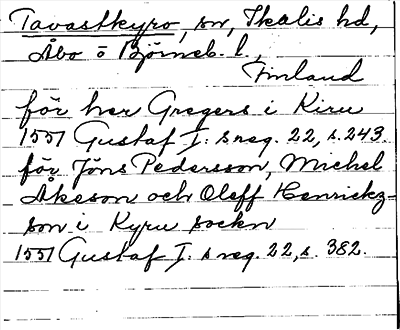 Tavastkyro, sn, Ikalis hd,
Åbo o Björneb. l.,
Finland
för her Gregers i Kiru
1551 Gustaf I: s reg. 22, s. 243.
för Jöns Pedersson, Michel
Åkeson och Oleff Henrickz-
son i Kyru sockn
1551 Gustaf I: s reg. 22, s. 382.